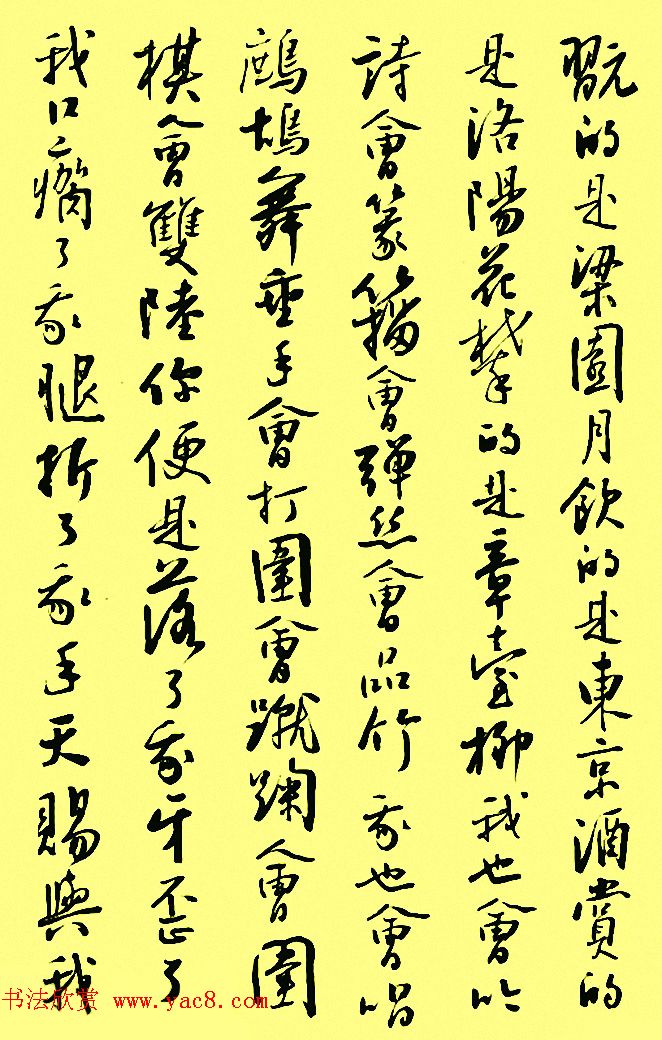 翫的是梁園月飲的是東京酒賞的
是洛陽花攀的是章臺柳我也會吟
詩會篆籀會彈絲會品竹我也會唱
鷓鴣舞垂手會打圍會蹴踘會圍
棋會雙陸你便是落了我牙歪了
我口瘸了我腿折了我手天賜與我
书法欣赏 www.yac8.com